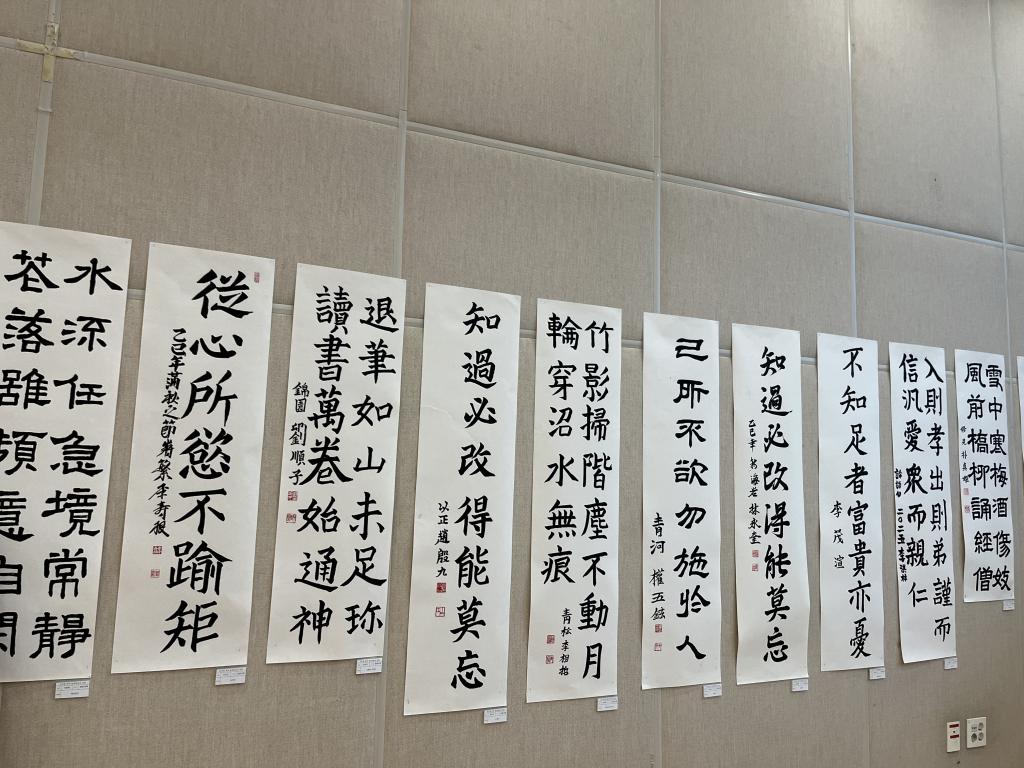 水流任急境常靜
花落雖頻意自
從心所慾不踰矩
乙巳年滿秋之節
退筆如山未足珎
讀書萬卷始通神
錦園 劉順子
知過必改得能莫忘
以正 趙殷九
竹影掃階塵不動月
輪穿沼水無痕
青松 李相
己所不欲勿施於人
青河 權五
知過必改得能莫忘
乙巳年
不知足者富貴亦憂
李茂
入則孝出則弟謹而
信汎愛衆而親仁
二〇二五 李
雪中寒梅酒傷妓
風前槁柳誦經僧